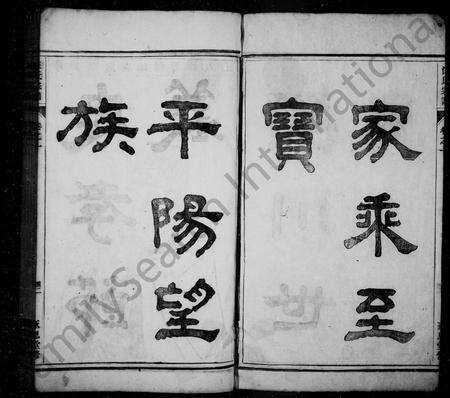 家乘至
寶
平陽望
族
FamilySearch International